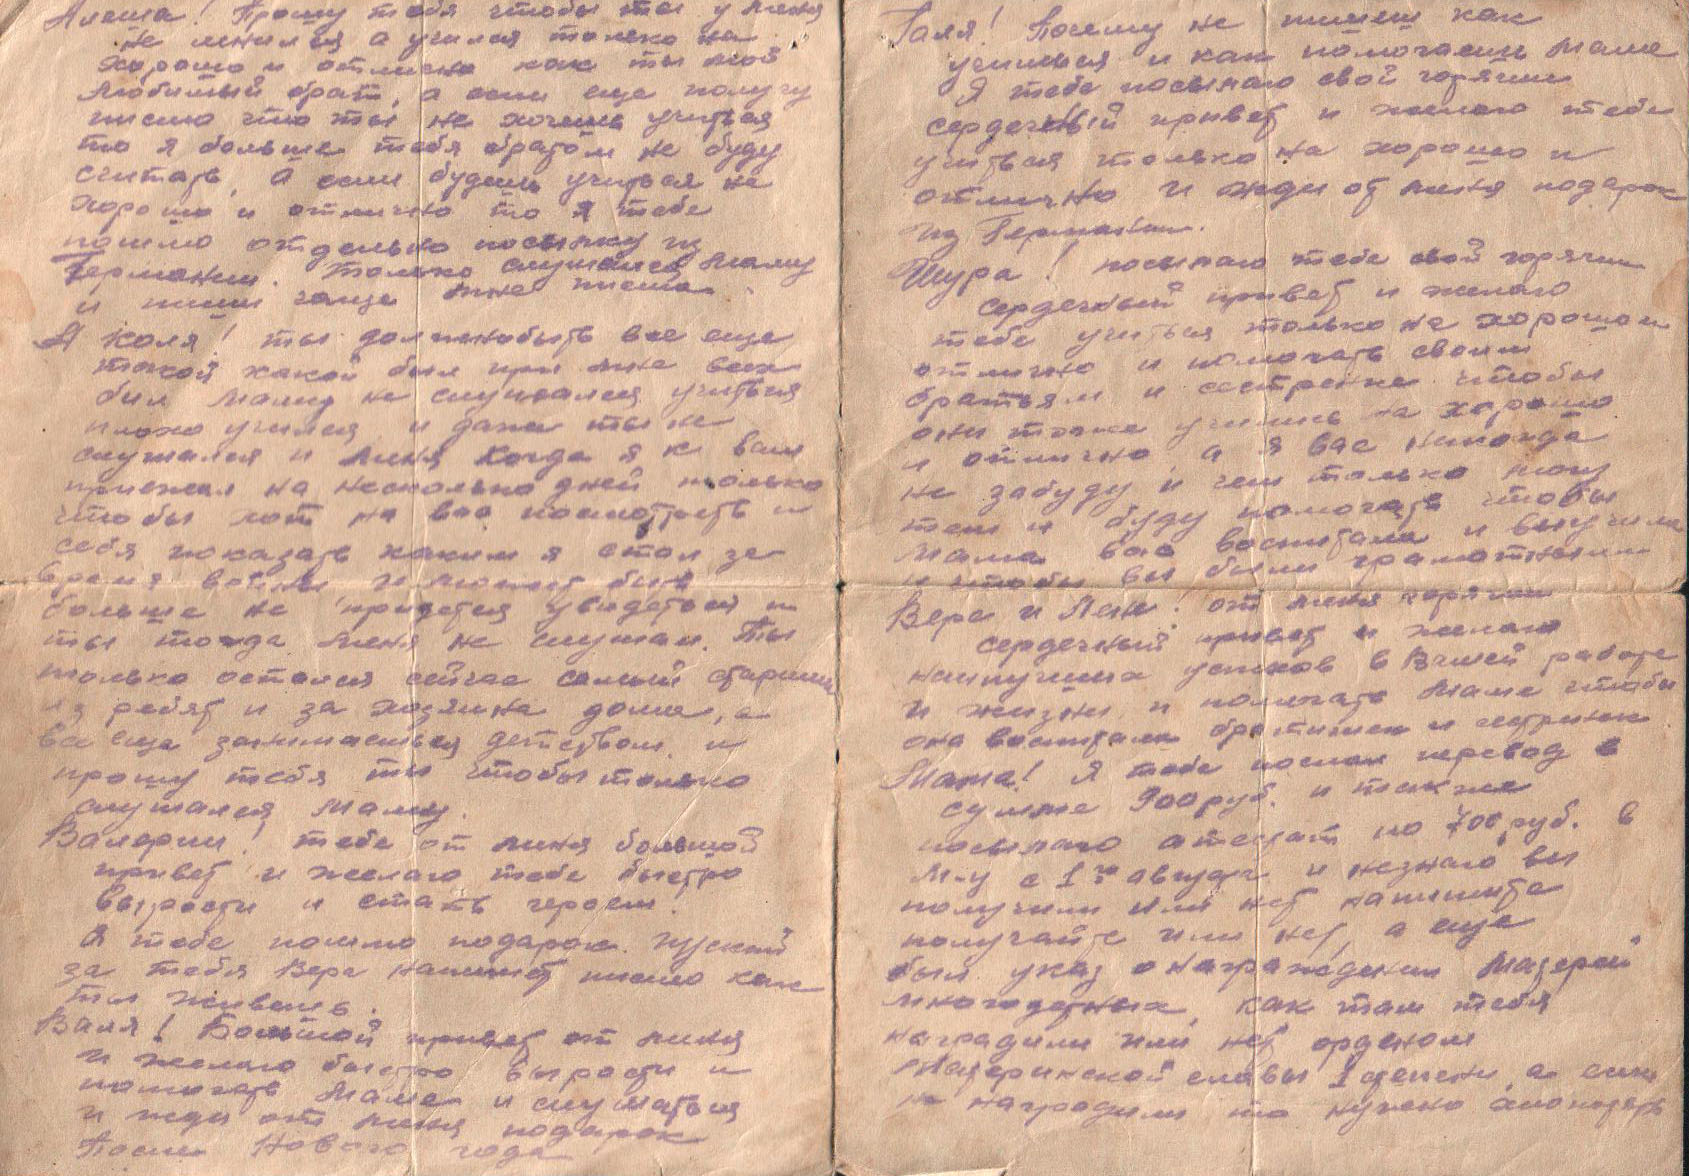 Алеша! Прошу тебя чтобы ты у меня
не ленился а учился только на
хорошо и отлично как ты мой
любимый брат, а если еще получу
письмо что ты не хочешь учиться
то я больше тебя братом не буду
считать, а если будешь учиться на
хорошо и отлично то я тебе
пошлю отдельно посылку из
Германии. только слушайся маму
и пиши чаще мне письма.
А Коля! ты должнобыть все еще
такой какой был при мне
был маму не слушался учиться
плохо учился и даже ты не
слушался и меня когда я к вам
приежал на несколько дней только
чтобы хот на вас посмотреть и
себя показать каким я стал за
время войны и может быть
больше не придется увидеться и
ты тогда меня не слушал. Ты
только остался сейчас самый старший
из ребят и за хозяина дома, а
все еще занимаешься детством и
прошу тебя ты чтобы только
слушался маму.
Валерий! тебе от меня большой
привет и желаю тебе быстро
вырости и стать героем.
Я тебе пошлю подарок. пускай
за тебя Вера напишет письмо как
ты живешь.
Валя! Большой привет от меня
и желаю быстро вырости и
помогать маме и слушаться
и жди от меня подарок
после Нового года
Галя! Почему не пишеш как
учишься и как помогаешь маме
Я тебе посылаю свой горячий
сердечный привет и желаю тебе
учиться только на хорошо и
отлично и жди от меня подарок
из Германии.
Шура! посылаю тебе свой горячий
сердечный привет и желаю
тебе учиться только на хорошо и
отлично и помогать своим
братьям и сестренке чтобы
они тоже учились на хорошо
и отлично а я вас никогда
не забуду и чем только могу
тем и буду помогать чтобы
мама вас воспитала и выучила
и чтобы вы были грамотными
Вера и Лен! от меня горячий
сердечный привет и желаю
наилучших успехов в Вашей работе
и жизни и помогать маме чтобы
она воспитала братишек и сестренок
Мама! Я тебе послал перевод в
сумме 900 руб. и также
посылаю атестат по 700 руб. в
м-ц с 1го августа и незнаю вы
получили или нет напишите
получайте или нет, а еще
был указ о награждении матерей
многодетных, как там тебя
наградили или нет орденом
Материнской славы 1 степени, а если
не наградили то нужно